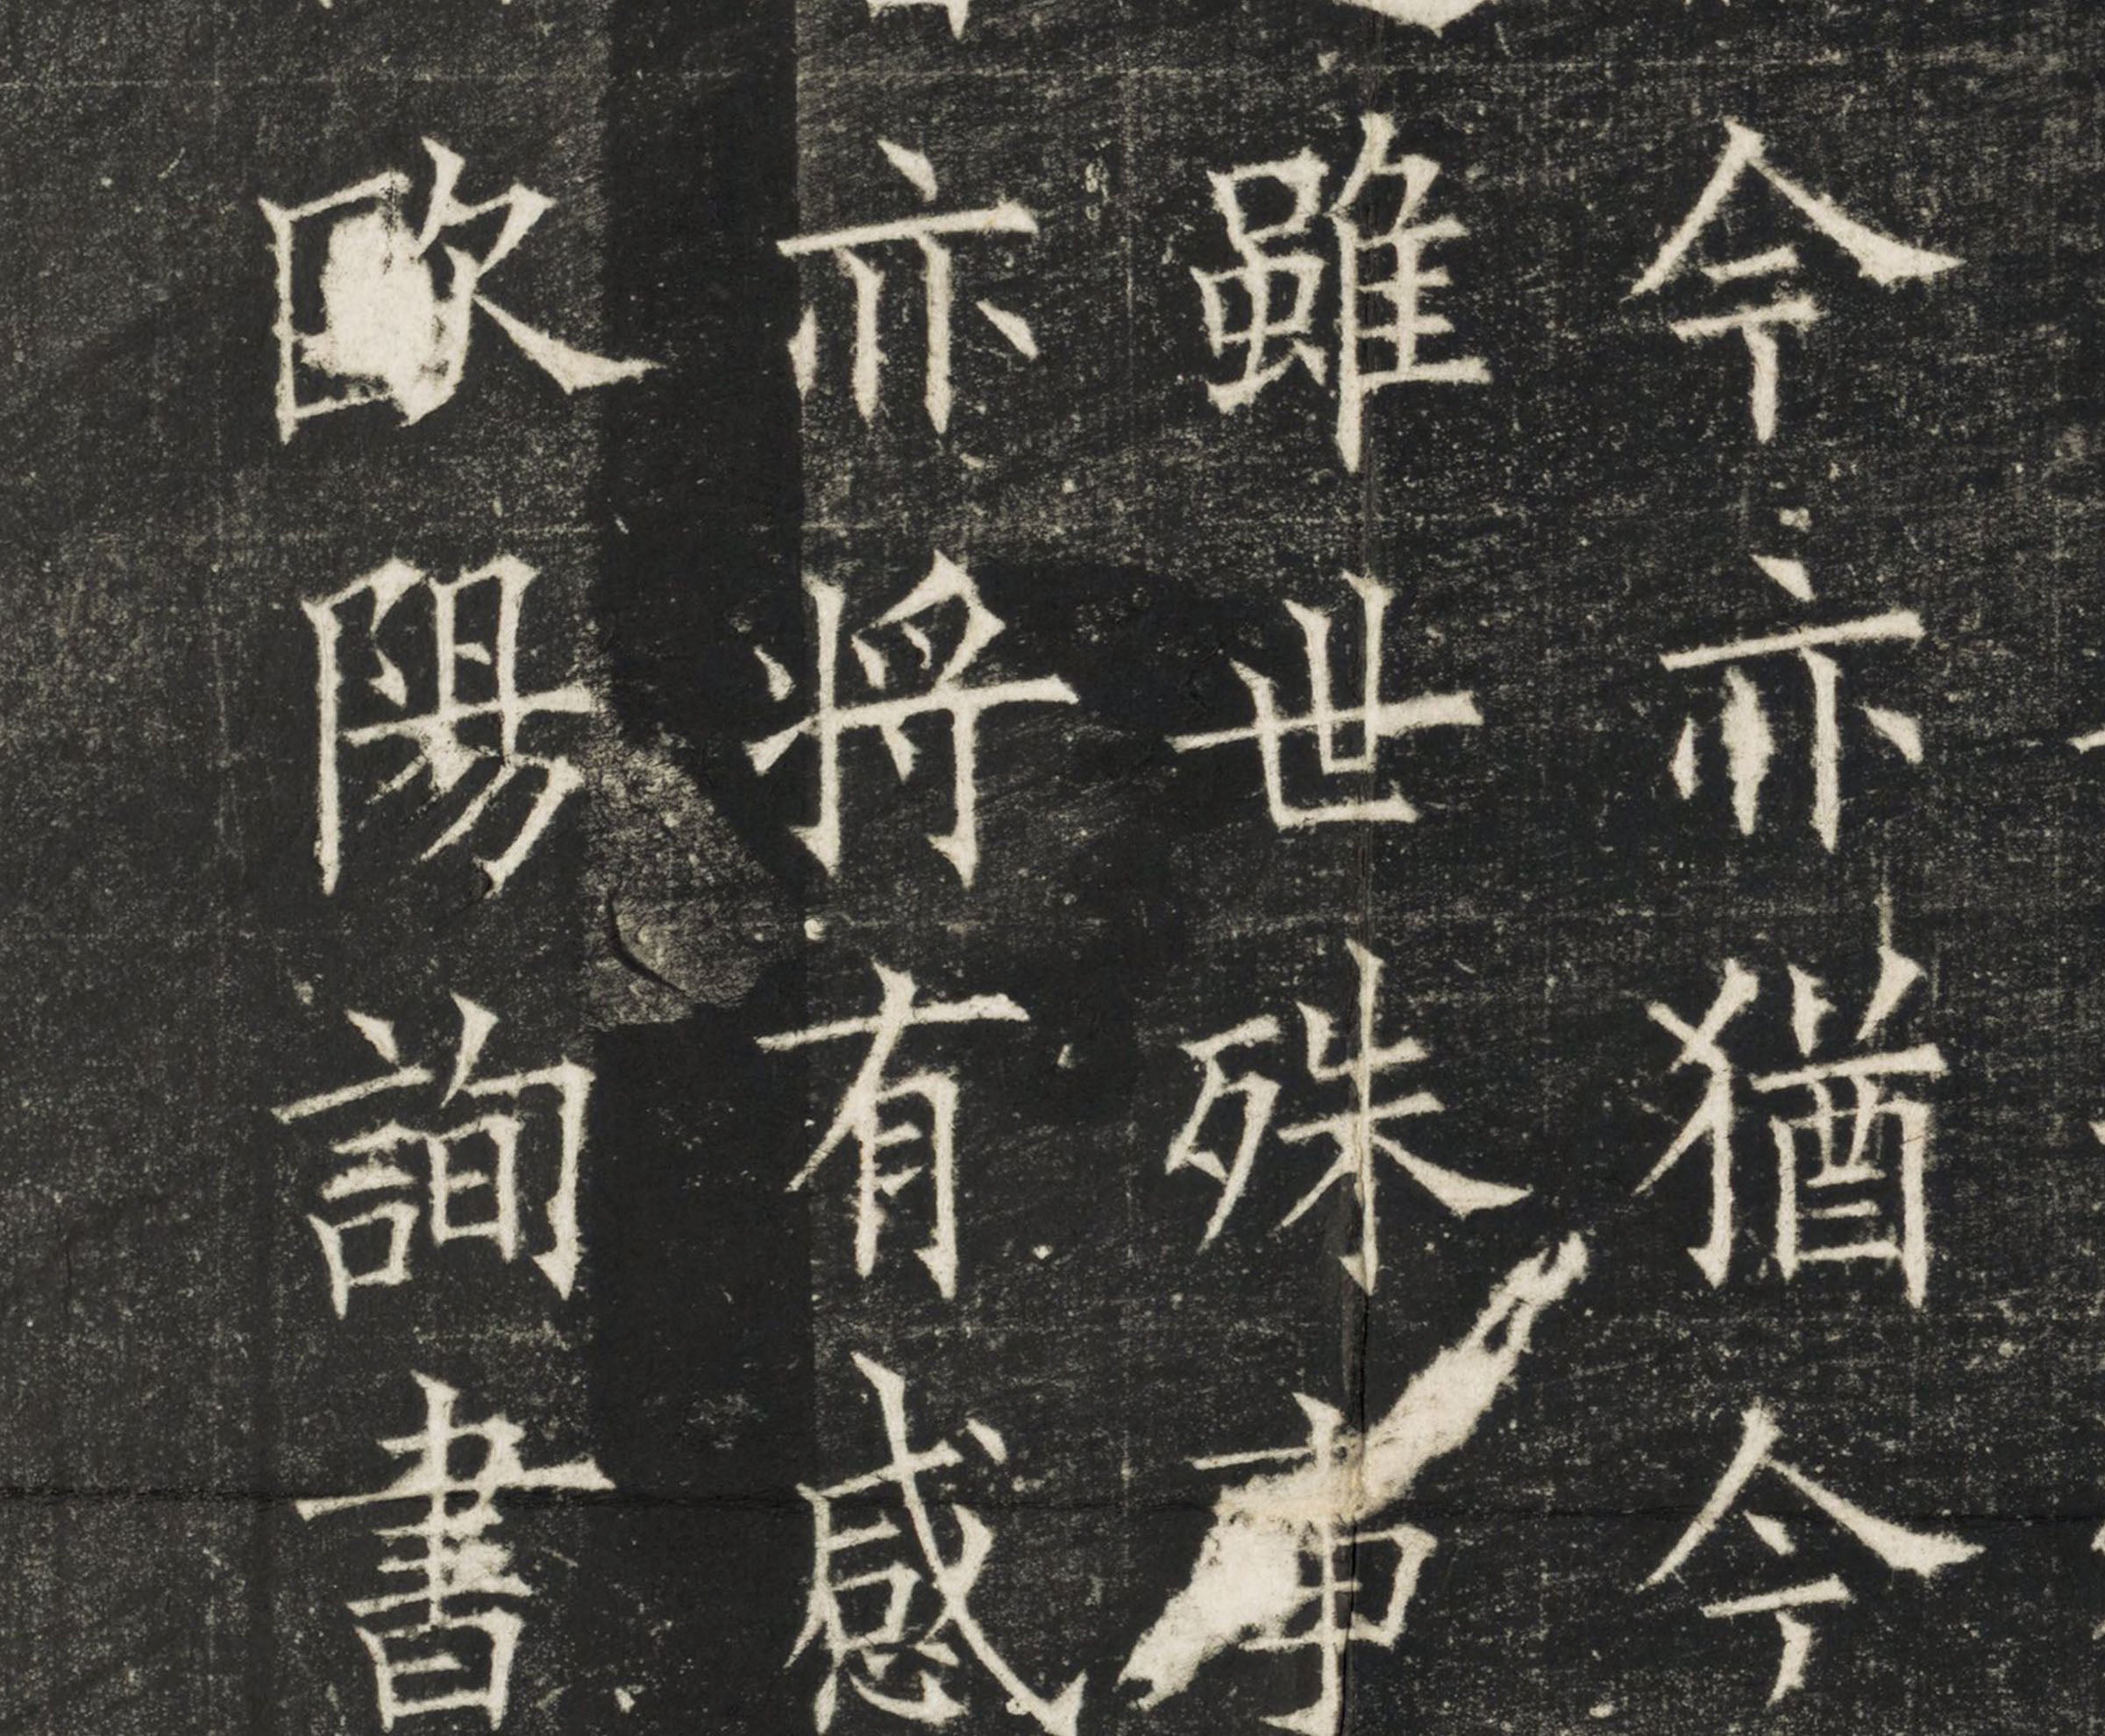 今亦猶今
雖世殊事
亦将有感
歐陽詢書